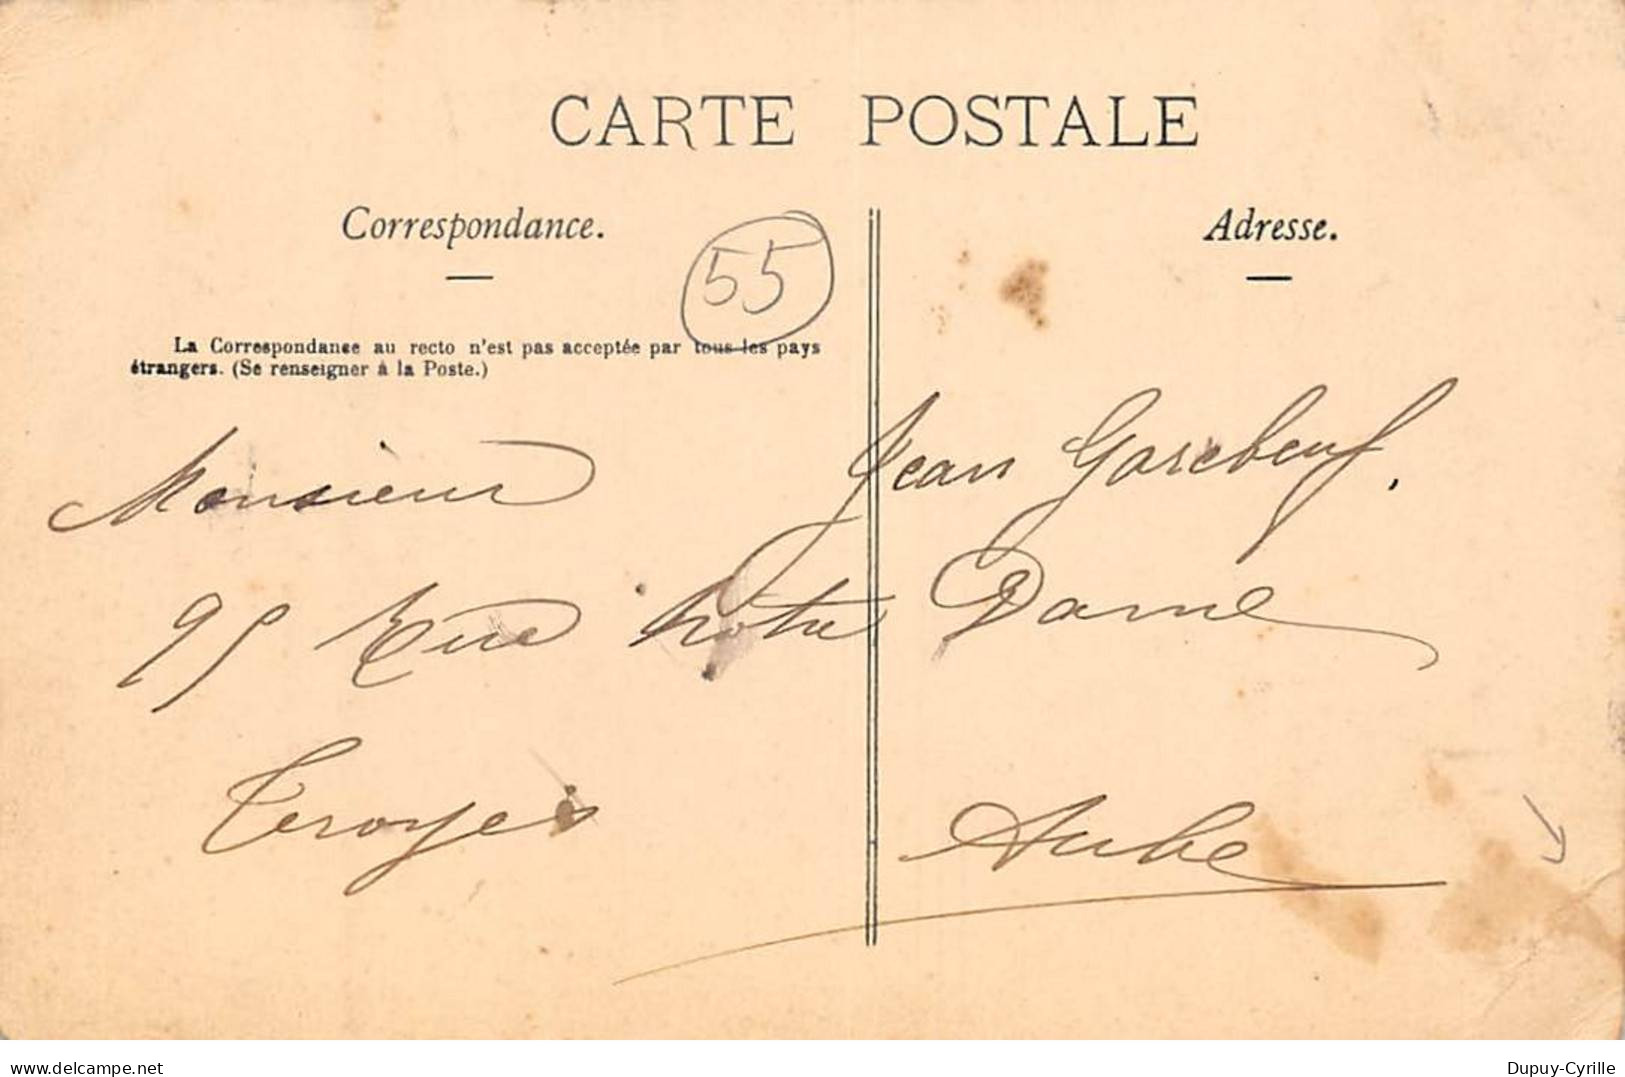 CARTE POSTALE
Correspondance.
Adresse.
55
La Correspondance au recto n'est pas acceptée par tous les pays
étrangers. (Se renseigner à la Poste.)
Monsieur Jean
95 Rue Notre Dame
Troyes Aube
www.delcampe.net
Dupuy-Cyrille